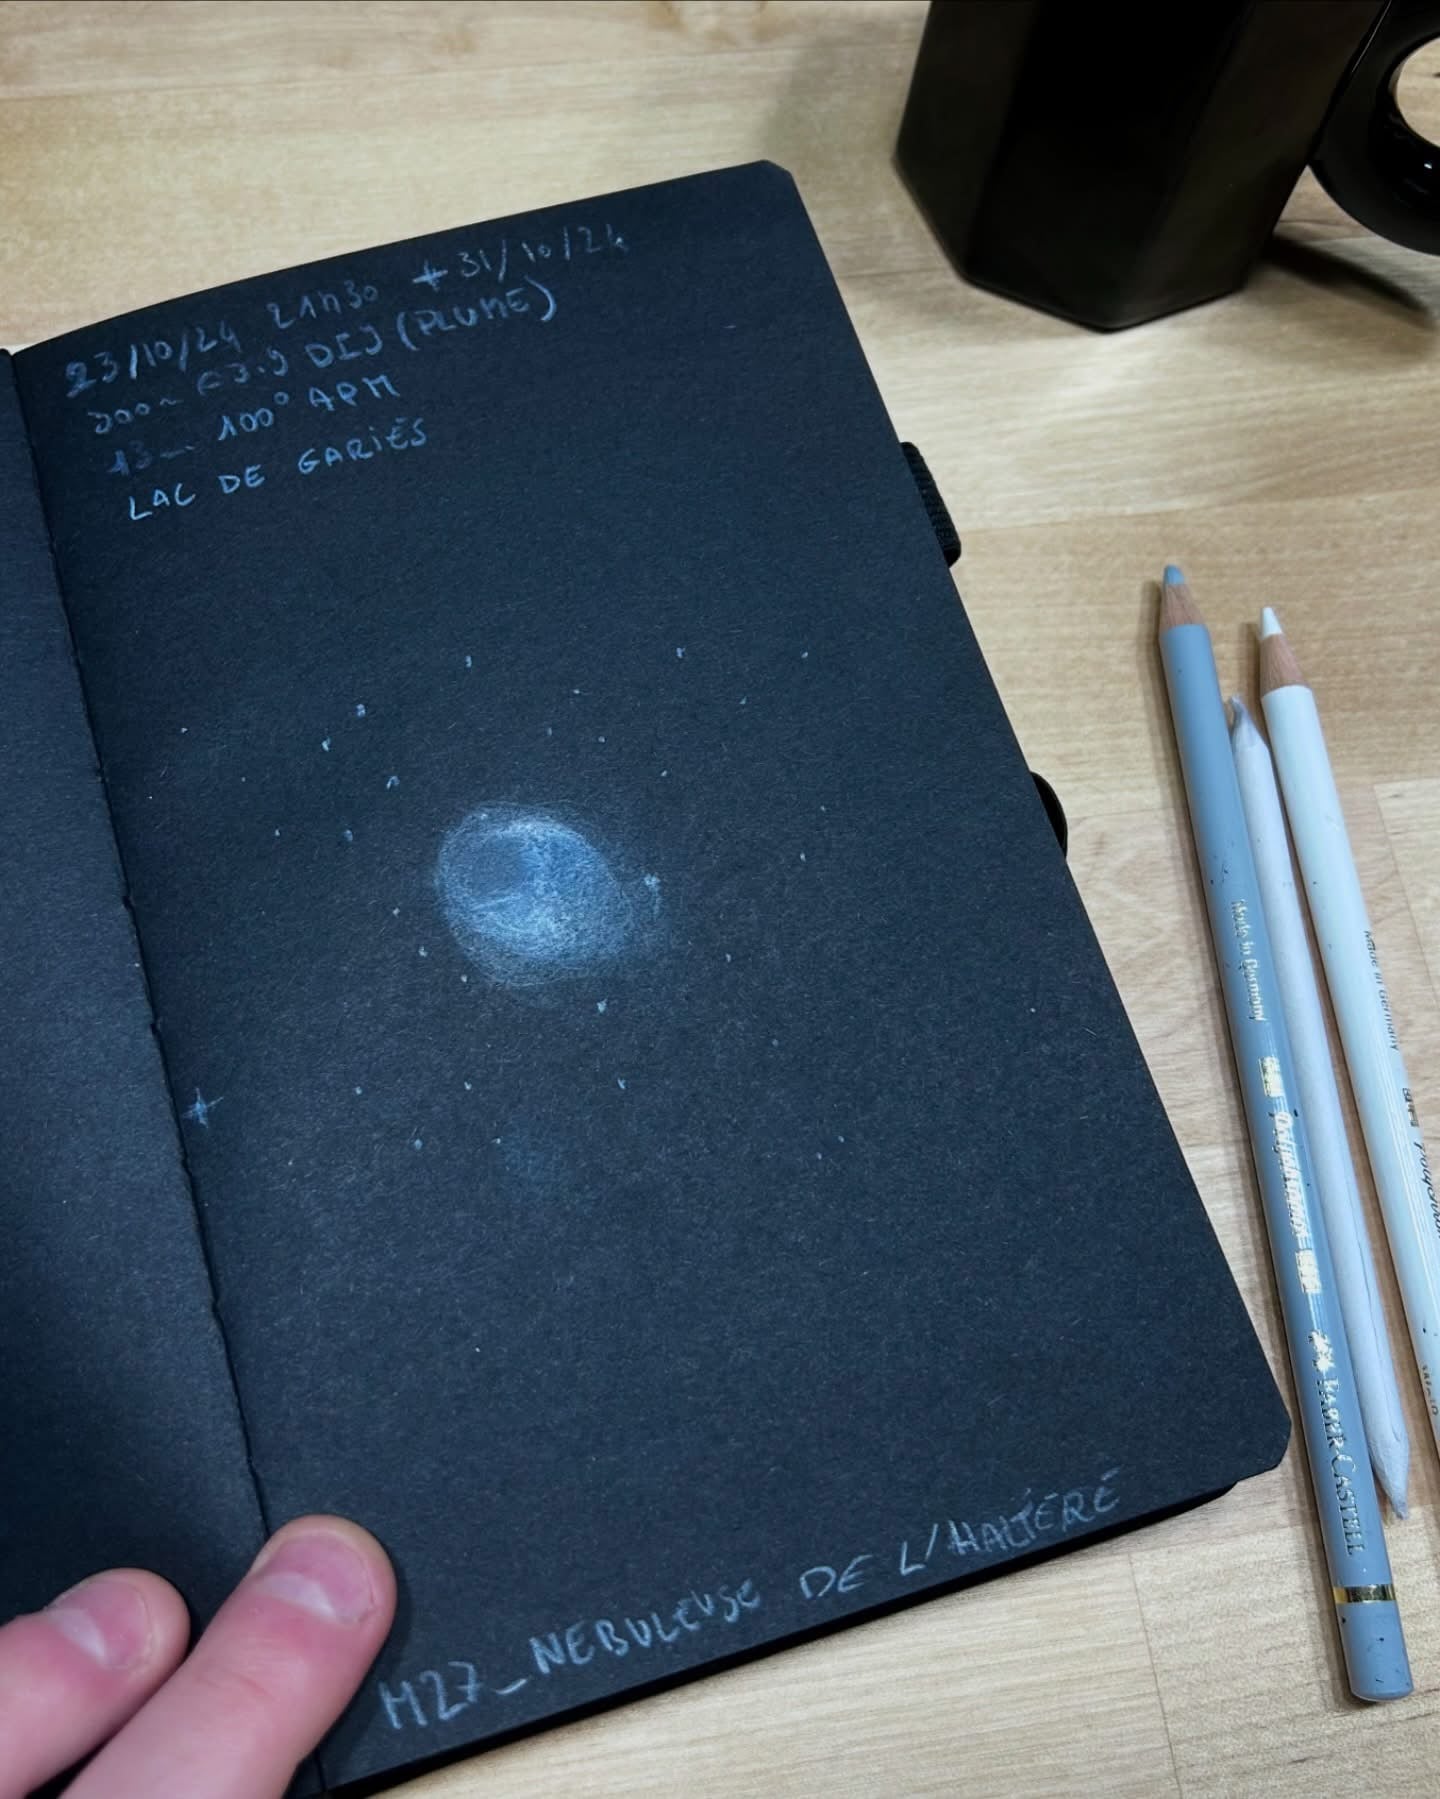 23/10/24 21h30 +31/10/24
200m F3.9 DIJ (PLUME)
13m 100° APM
LAC DE GARIÉS
M27_NEBULEUSE DE L'HALTÈRE
Made in Germany
FABER-CASTELL
Made in Germany